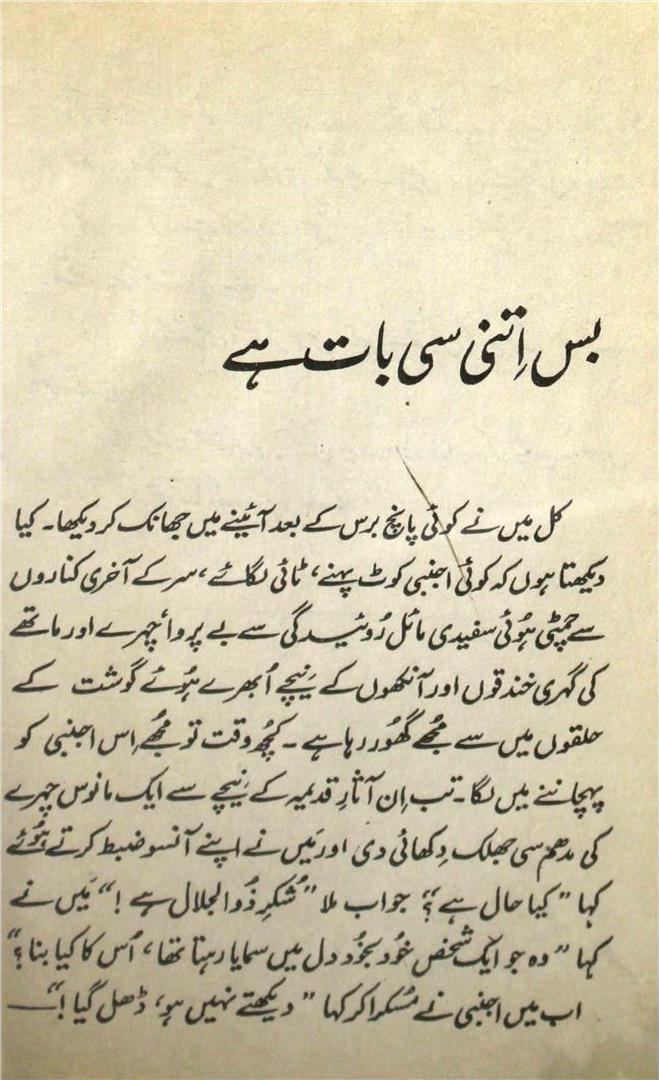 بس اِتنی سی بات ہے
کل میں نے کوئی پانچ برس کے بعد آئینے میں جھانک کر دیکھا۔ کیا
دیکھتا ہوں کہ کوئی اجنبی کوٹ پہنے، ٹائی لگائے، سر کے آخری کناروں
سے چمٹی ہُوئی سفیدی مائل رُوئیدگی سے بے پروا، چہرے اور ماتھے
کی گہری خندقوں اور آنکھوں کے نیچے اُبھرے ہُوئے گوشت کے
حلقوں میں سے مجھے گھُور رہا ہے۔ کچُھ وقت تو مجُھے اِس اجنبی کو
پہچاننے میں لگا۔ تب اِن آثارِ قدیمہ کے نیچے سے ایک مانوس چہرے
کی مدھم سی جھلک دِکھائی دی اور مَیں نے اپنے آنسو ضبط کرتے ہُوئے
کہا "کیا حال ہے؟" جواب ملا "شُکرِ ذُوالجلال ہے!" مَیں نے
کہا "وہ جو ایک شخص خُود بخُود دل میں سمایا رہتا تھا، اُس کا کیا بنا؟"
اب میں اجنبی نے مُسکرا کر کہا "دیکھتے نہیں ہو، ڈھل گیا!"